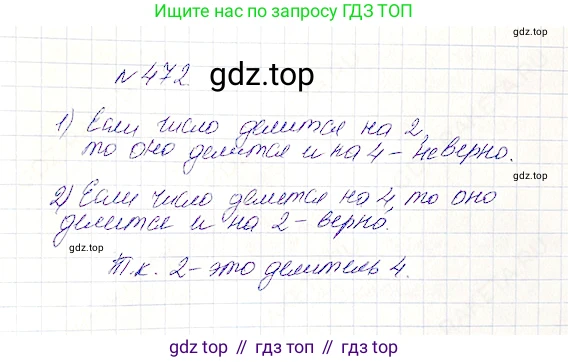 Ищите нас по запросу ГДЗ ТОП
№ 472 gdz.top
1) Если число делится на 2,
то оно делится и на 4 - неверно.
gdz.top
2) Если число делится на 4, то оно
делится и на 2 - верно.
gdz.top
Т.к. 2 - это делитель 4.
gdz.top // гдз.топ // gdz.top